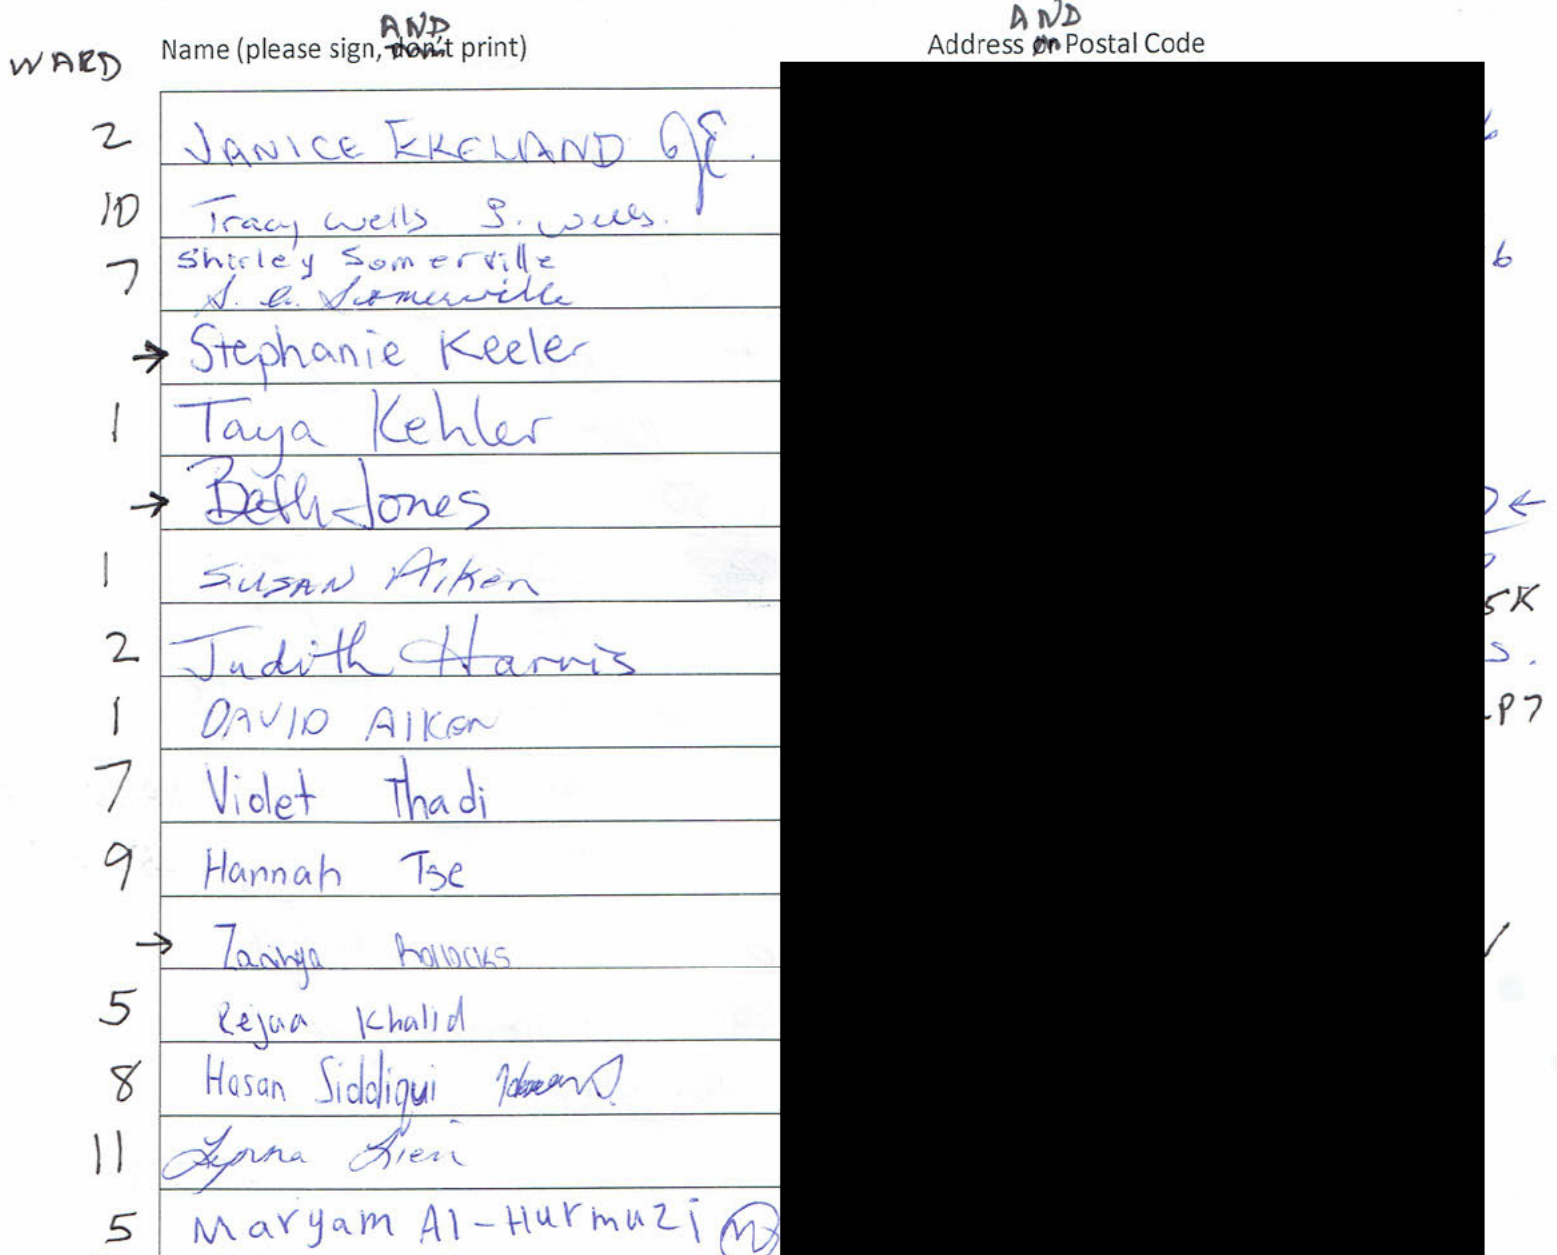 WARD Name (please sign, don't AND print) Address or AND Postal Code
2 JANICE EKELAND JE.
10 Tracy Wells S. Wells.
7 Shirley Somerville
S. C. Somerville
→ Stephanie Keeler
1 Taya Kehler
→ Beth Jones ←
1 SUSAN Aiken
5K
2 Judith Harris S.
1 DAVID AIKEN P7
7 Violet Thadi
9 Hannah Tse
→
5 Rejaa Khalid
8 Hasan Siddiqui
11 Lynna
5 Maryam Al-Hurmuzi